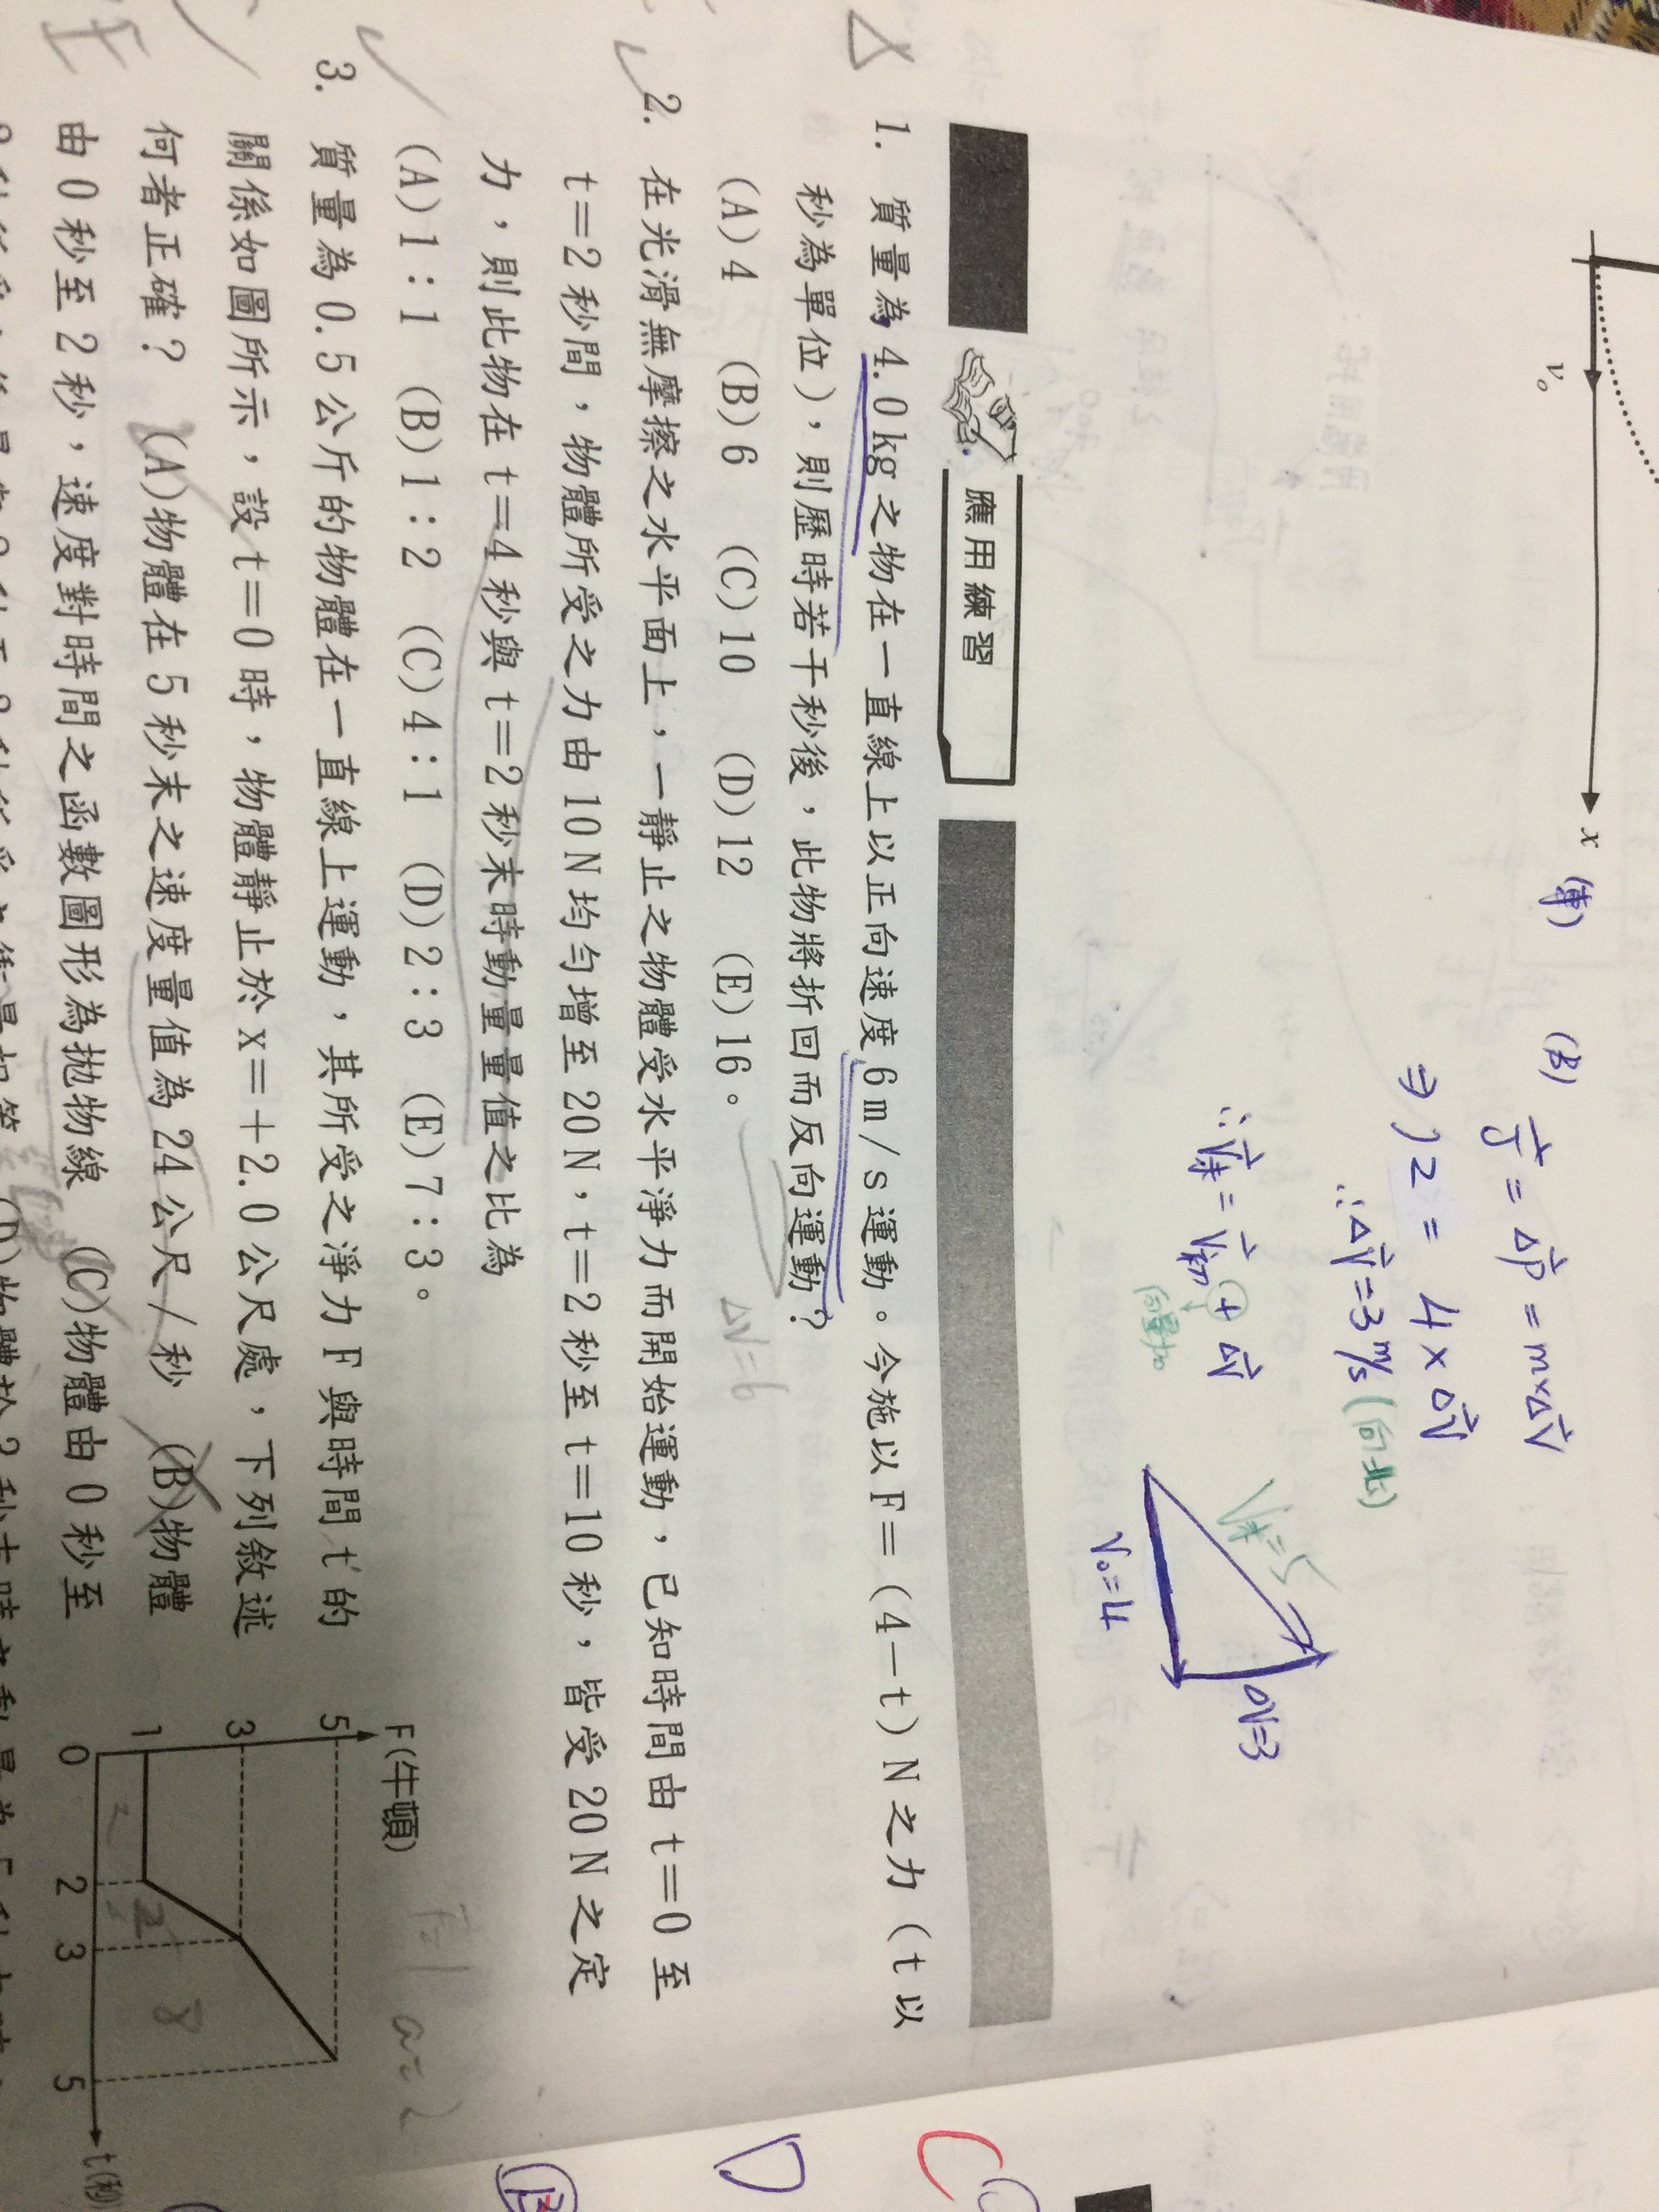 v₀
x
(東)
(B)
J⃗ = ΔP⃗ = m×ΔV⃗
⇒ 12 = 4 × ΔV⃗
∴ΔV⃗=3 m/s (向北)
∴V⃗末 = V⃗初 + ΔV⃗
向量加
V末=5
V₀=4
ΔV=3
應用練習
1. 質量為4.0kg之物在一直線上以正向速度6m/s運動。今施以F=(4-t)N之力(t以
秒為單位),則歷時若干秒後,此物將折回而反向運動?
(A)4 (B)6 (C)10 (D)12 (E)16。
ΔV=6
2. 在光滑無摩擦之水平面上,一靜止之物體受水平淨力而開始運動,已知時間由t=0至
t=2秒間,物體所受之力由10N均勻增至20N,t=2秒至t=10秒,皆受20N之定
力,則此物在t=4秒與t=2秒末時動量量值之比為
(A)1:1 (B)1:2 (C)4:1 (D)2:3 (E)7:3。
3. 質量為0.5公斤的物體在一直線上運動,其所受之淨力F與時間t的
關係如圖所示,設t=0時,物體靜止於x=+2.0公尺處,下列敘述
何者正確? (A)物體在5秒末之速度量值為24公尺/秒 (B)物體
由0秒至2秒,速度對時間之函數圖形為拋物線 (C)物體由0秒至
F(牛頓)
5
3
1
0 2 3 5 t(秒)
2 2 8
a=2
D